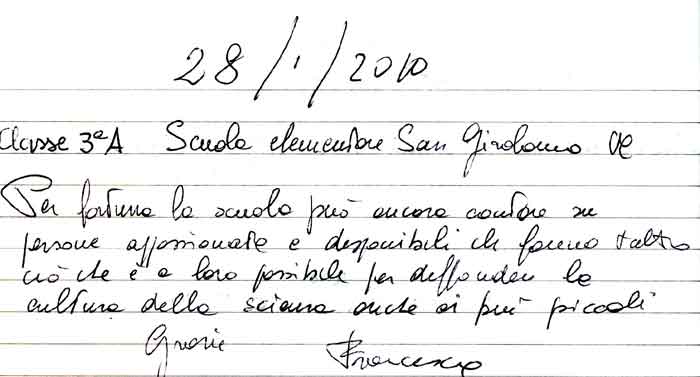 28/1/2010
Classe 3ªA Scuola elementare San Girolamo VE
Per fortuna la scuola può ancora contare su
persone appassionate e disponibili che fanno tutto
ciò che è a loro possibile per diffondere la
cultura della scienza anche ai più piccoli
Grazie Francesco